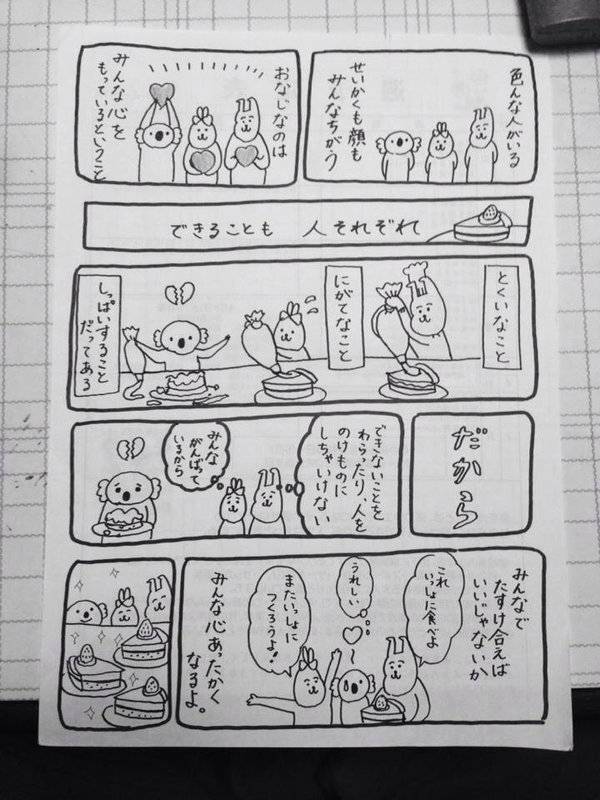 色んな人がいる
せいかくも顔も
みんなちがう
おなじなのは
みんな心を
もっているということ
できることも 人それぞれ
とくいなこと
にがてなこと
しっぱいすること
だってある
だから
できないことを
わらったり、人を
のけものに
しちゃいけない
みんな
がんばって
いるから
みんなで
たすけ合えば
いいじゃないか
これ
いっしょに食べよ
うれしい
またいっしょに
つくろうよ!
みんな心あたたかく
なるよ。